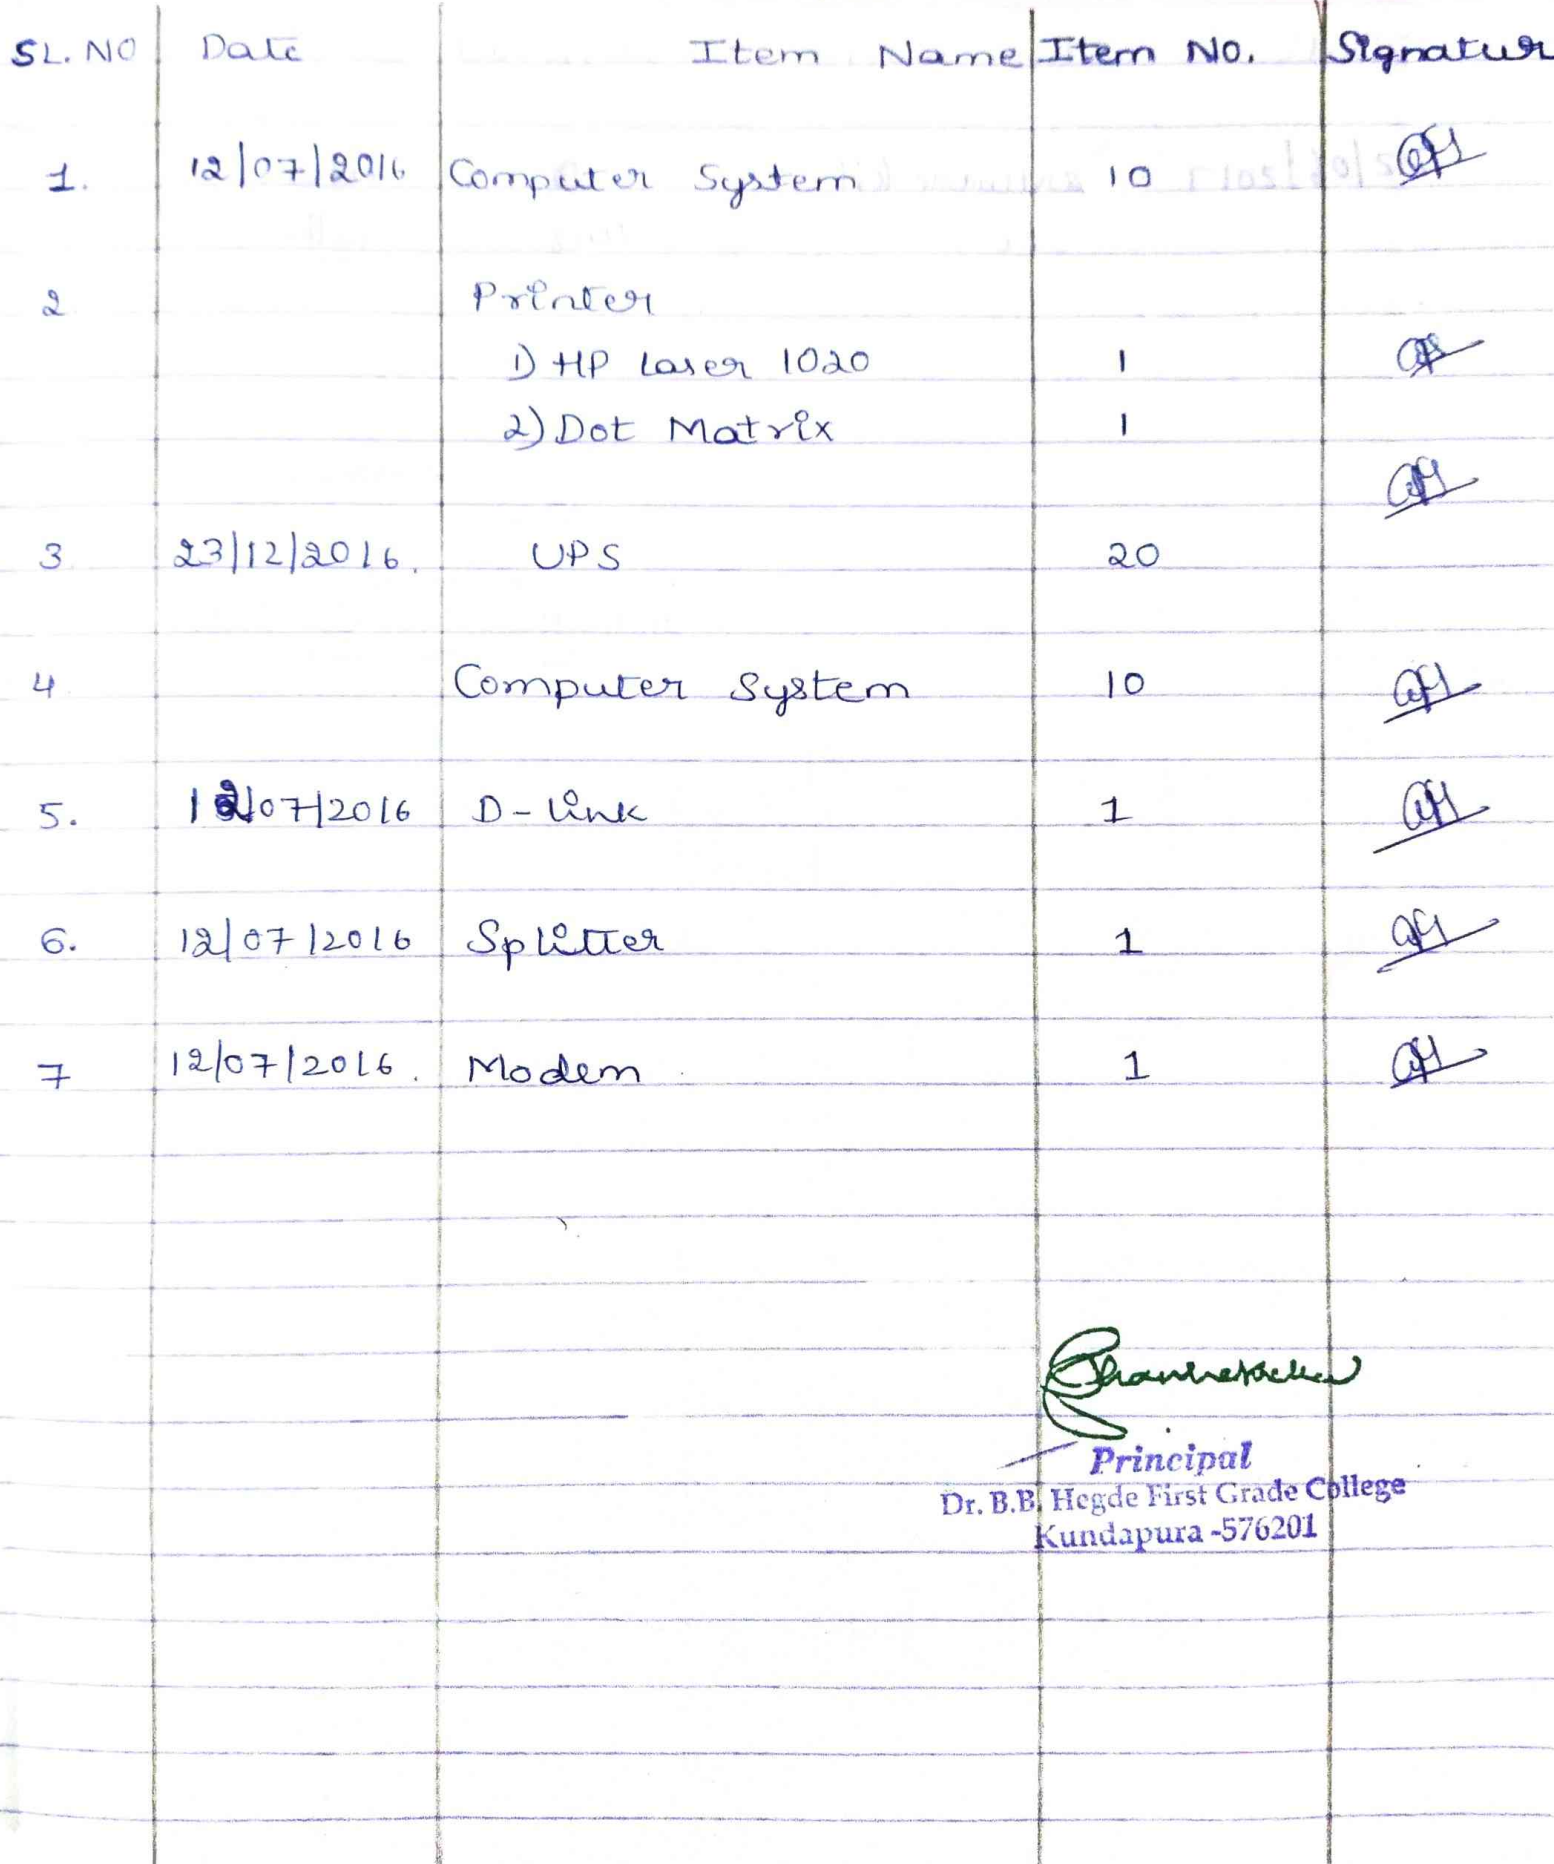 SL. NO Date Item Name Item No. Signatur
1. 12/07/2016 Computer System 10
2 Printer
1) HP Laser 1020 1
2) Dot Matrix 1
3 23/12/2016. UPS 20
4 Computer System 10
5. 12/07/2016 D-Link 1
6. 12/07/2016 Splitter 1
7 12/07/2016. Modem 1
Principal
Dr. B.B. Hegde First Grade College
Kundapura -576201